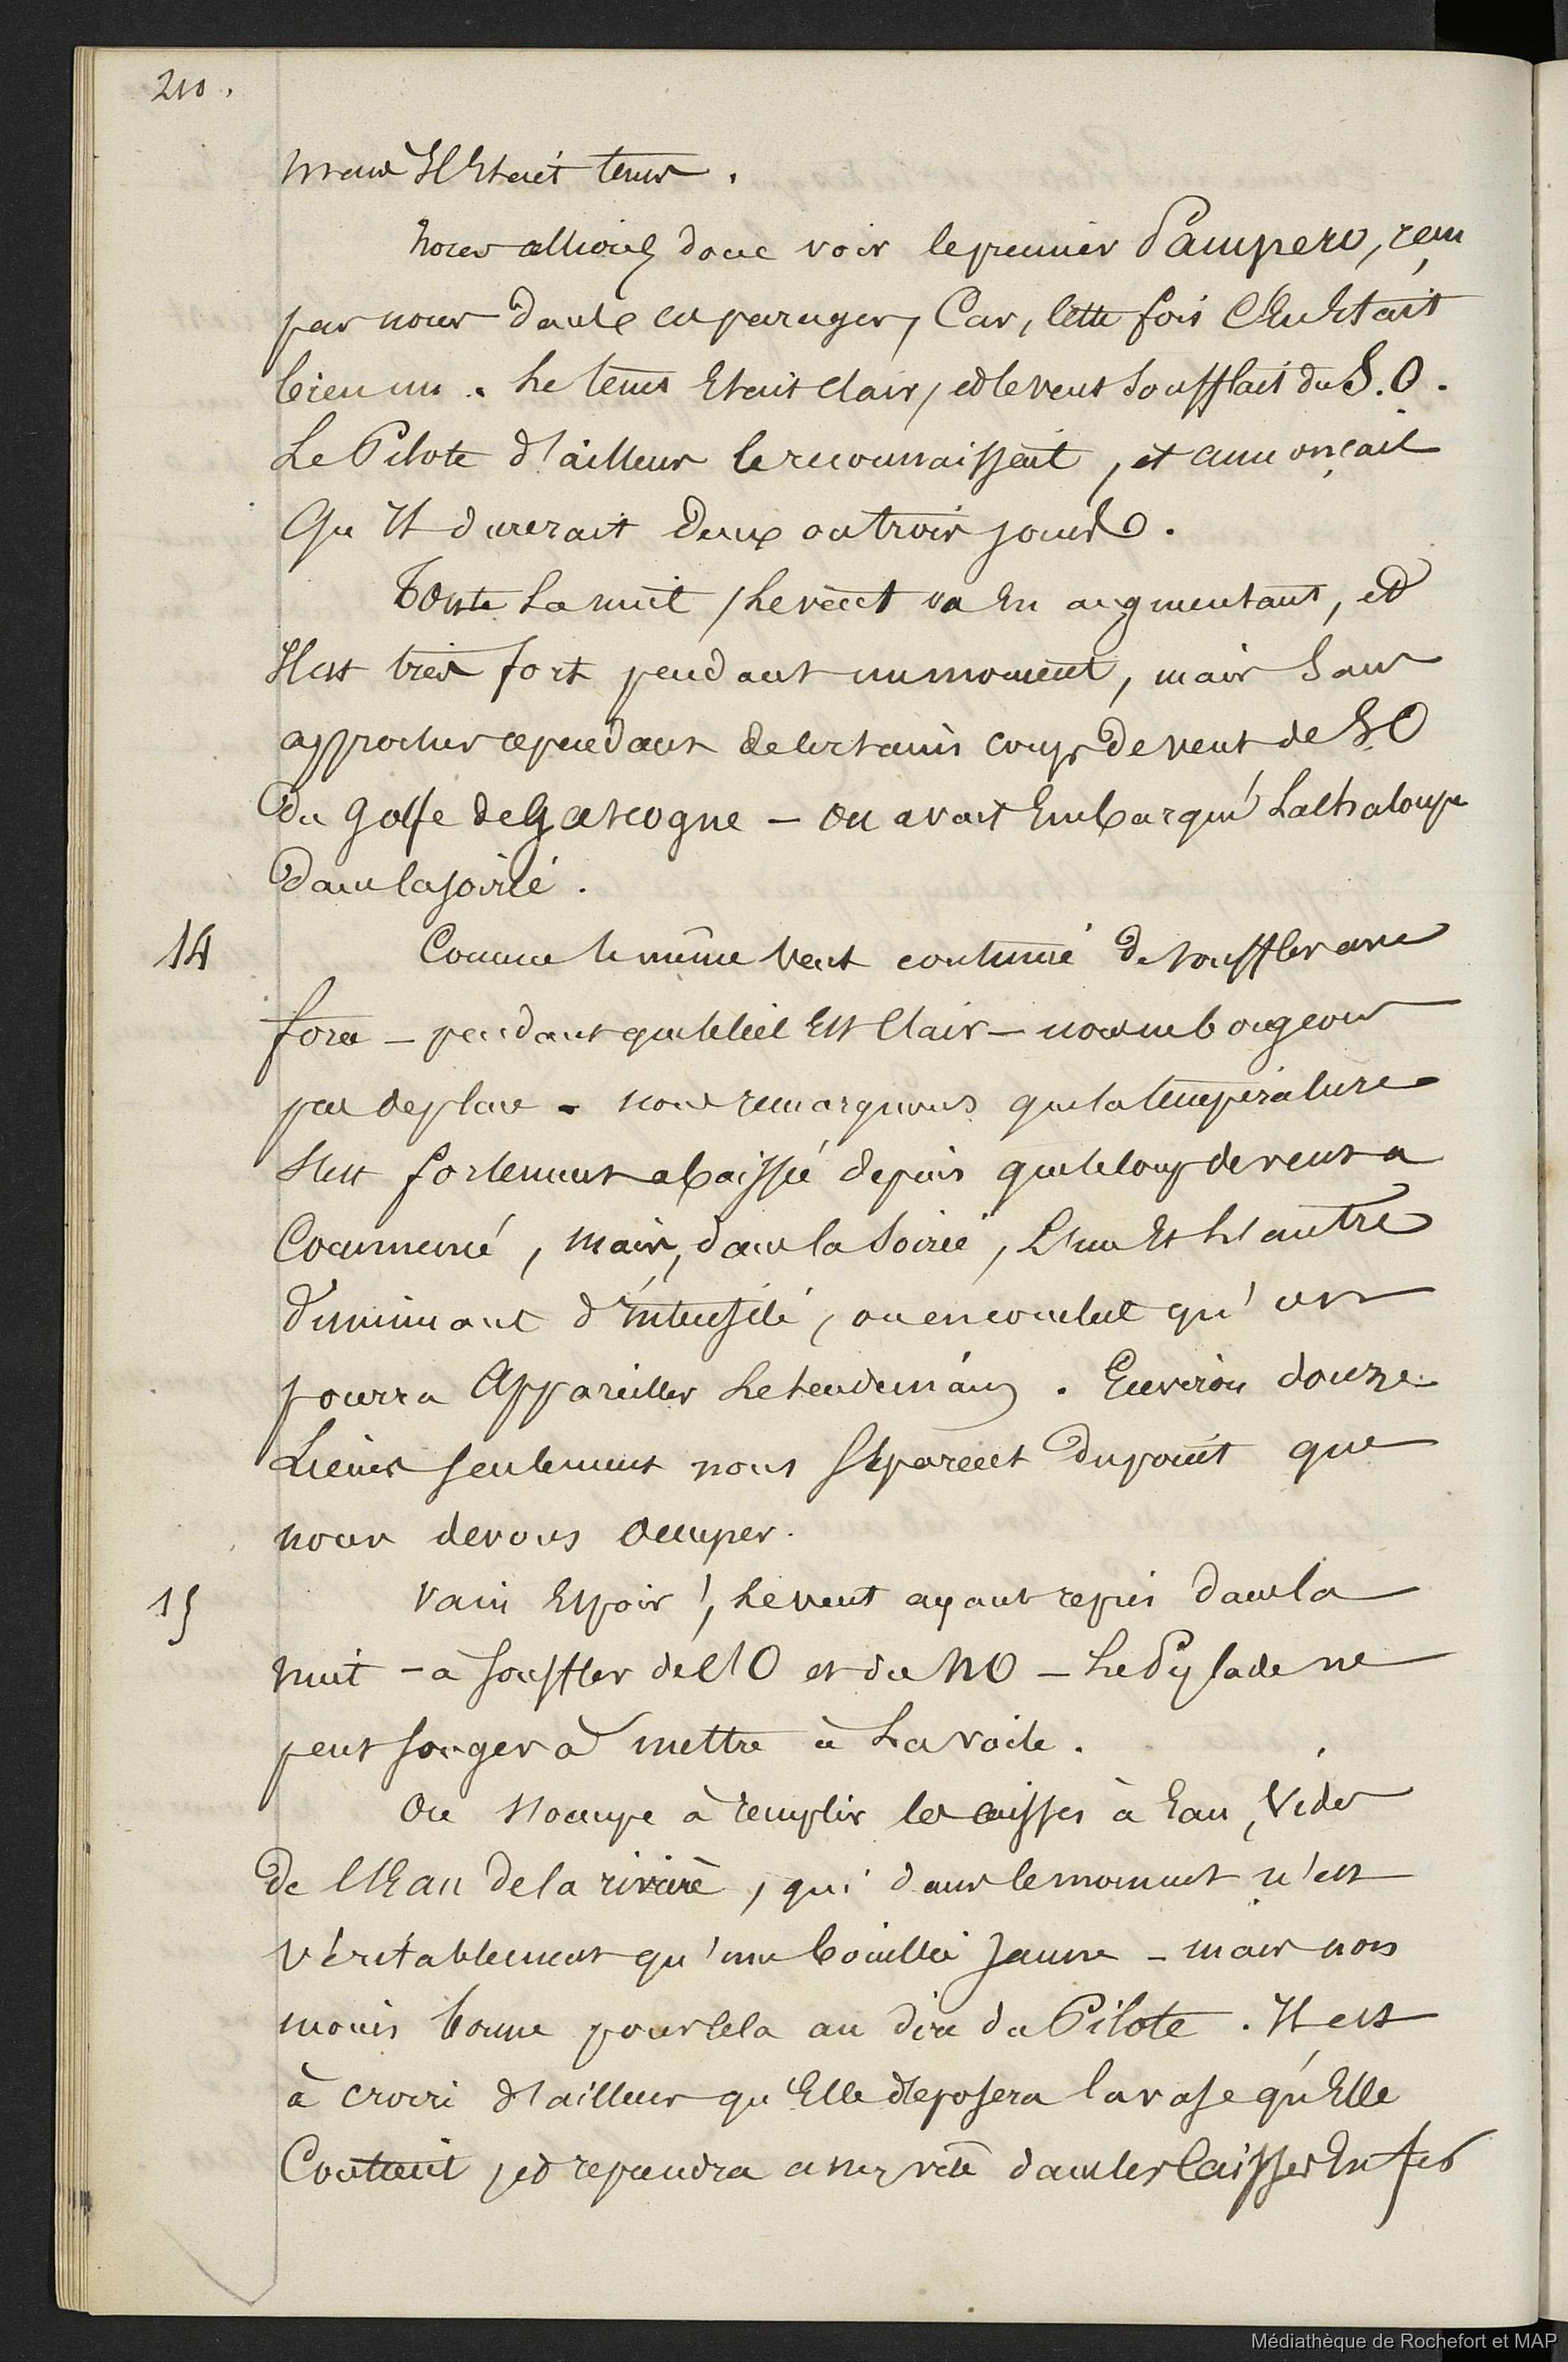 210.
mais Il Etait tems.
Nous allions donc voir le premier Pampero, reçu
par nous dans ces parages, Car, Cette fois C'En Etait
bien un. Le tems Etait clair, et le vent soufflait du S.O.
Le Pilote d'ailleurs le reconnaissait, et annonçait
Qu'Il durerait deux ou trois jours.
Toute La nuit, Le vent va En augmentant, et
Il est très fort pendant un moment, mais sans
approcher cependant de certains coups de vent de SO
du Golfe de Gascogne – on avait Embarqué La Chaloupe
dans la soirée.
14
Comme le même Vent continue de souffler avec
force – pendant que le Ciel Est Clair – nous ne bougeons
pas de place. Nous remarquons que la température
s'est fortement abaissée depuis que le Coup de vent a
Commencé, Mais, dans la Soirée, L'un Et L'autre
diminuant d'intensité, on en conclut qu'on
pourra Appareiller Le Lendemain. Environ douze
Lieues seulement nous Séparent du point que
nous devons Occuper.
15
Vain Espoir!, Le vent ayant repris dans la
nuit – à souffler de l'O et du NO – Le Pylade ne
peut songer à mettre à La voile.
On s'occupe à remplir les caisses à Eau, Vides
de l'Eau de la rivière, qui dans le moment n'est
Véritablement qu'une bouillie Jaune – mais non
moins bonne pour Cela au dire du Pilote. Il est
à croire d'ailleurs qu'Elle déposera la vase qu'Elle
Contient, et reprendra assez vite dans les Caisses En fer
Médiathèque de Rochefort et MAP